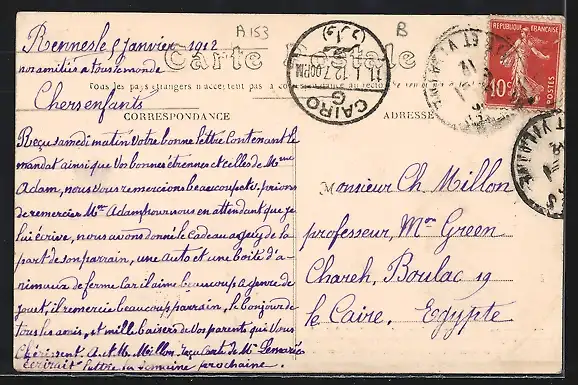 Rennes le 5 janvier 1912
nos amitiés a tous le monde
Chers enfants
A 153
B
Carte Postale
Tous les pays étrangers n'acceptent pas la correspondance au recto
CORRESPONDANCE
ADRESSE
Reçu samedi matin votre bonne lettre contenant le
mandat ainsi que vos bonnes étrennes et celles de Mme
Adam, nous vous remercions beaucoup et prions
de remercier Mr Adam pour nous en attendant que je
lui écrive, nous avons donné le cadeau a guy de la
part de son parrain, une auto et une boite d'a-
nimaux de ferme car il aime beaucoup a genre de
jouet, il remercie beaucoup parrain, le bonjour de
tous les amis, et mille baisers de vos parents qui vous
chérissent. A et M. Millon reçu carte de Mr
écrirait lettre la semaine prochaine.
Monsieur Ch. Millon
professeur, Mon Green
Chareh, Boulac 19
le Caire. Egypte
CAIRO
G
11. I. 12. 7.00 PM
REPUBLIQUE FRANÇAISE
10c
POSTES